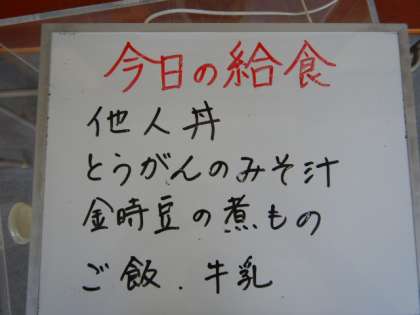 今日の給食
他人丼
とうがんのみそ汁
金時豆の煮もの
ご飯.牛乳